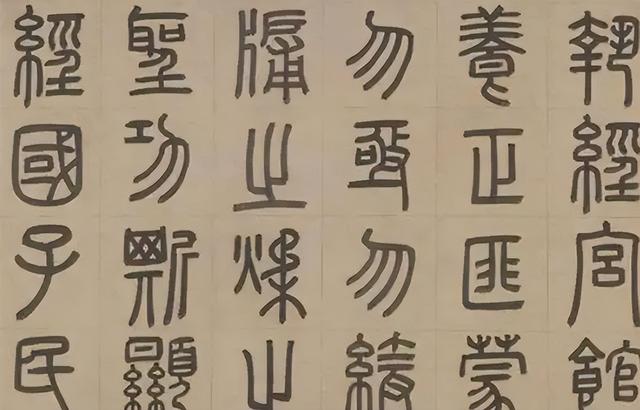 執經宮館
養正匪蒙
勿亟勿
牖之煣之
聖功斯顯
經國子民